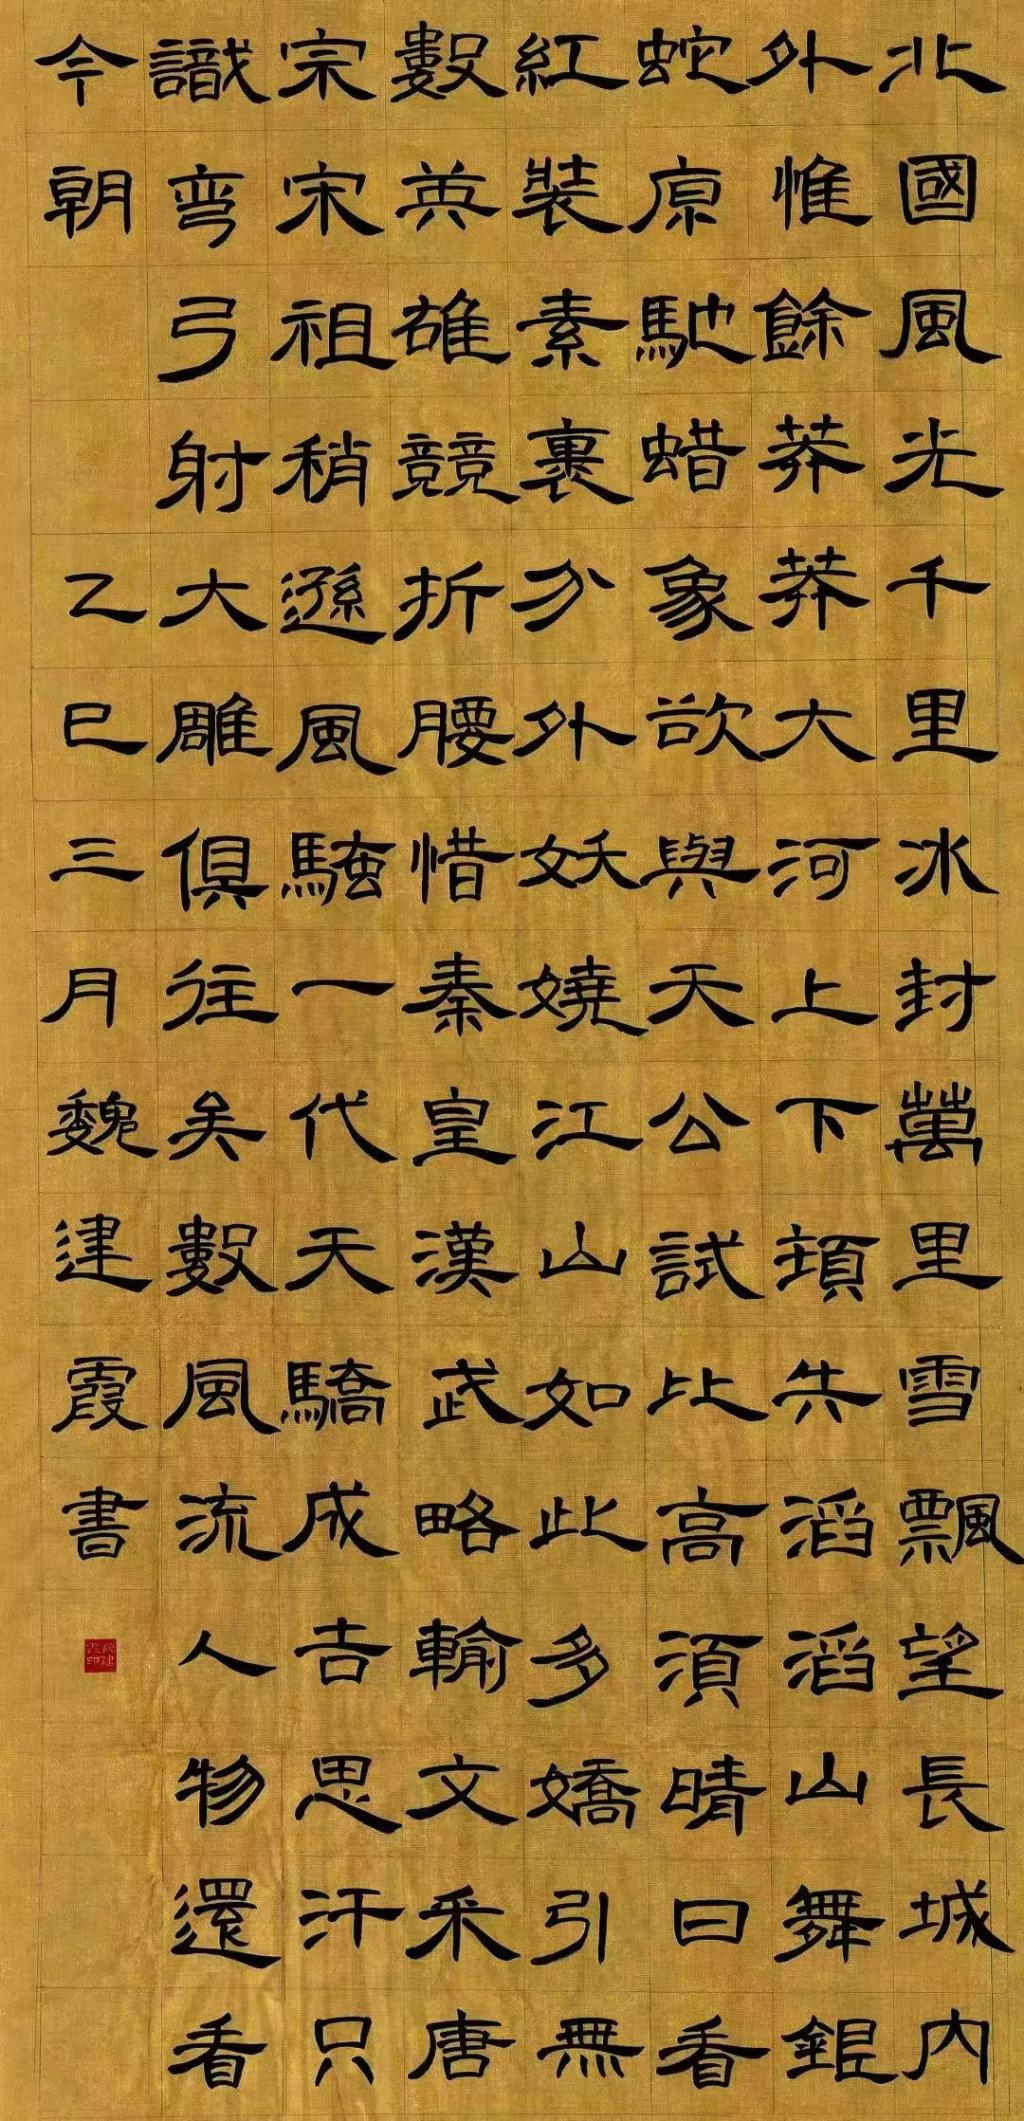 北國風光千里冰封萬里雪飄望長城內
外惟餘莽莽大河上下頓失滔滔山舞銀
蛇原馳蜡象欲與天公試比高須晴日看
紅裝素裹分外妖嬈江山如此多嬌引無
數英雄競折腰惜秦皇漢武略輸文采唐
宗宋祖稍遜風騷一代天驕成吉思汗只
識彎弓射大雕俱往矣數風流人物還看
今朝 乙巳三月魏建霞書